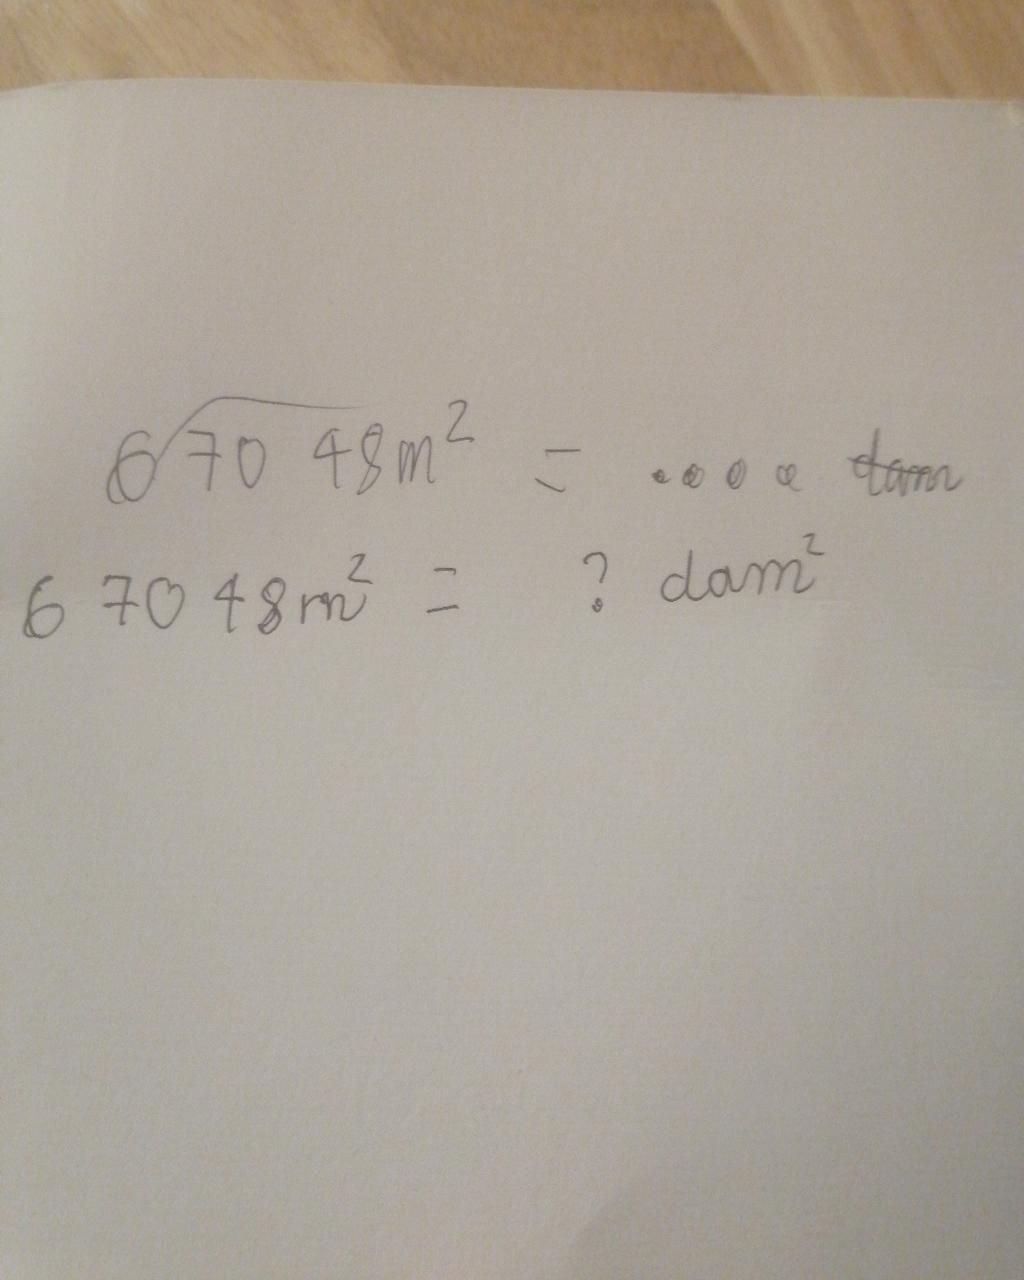 6 70 48m² = .... dam
6 70 48m² = ? dam²